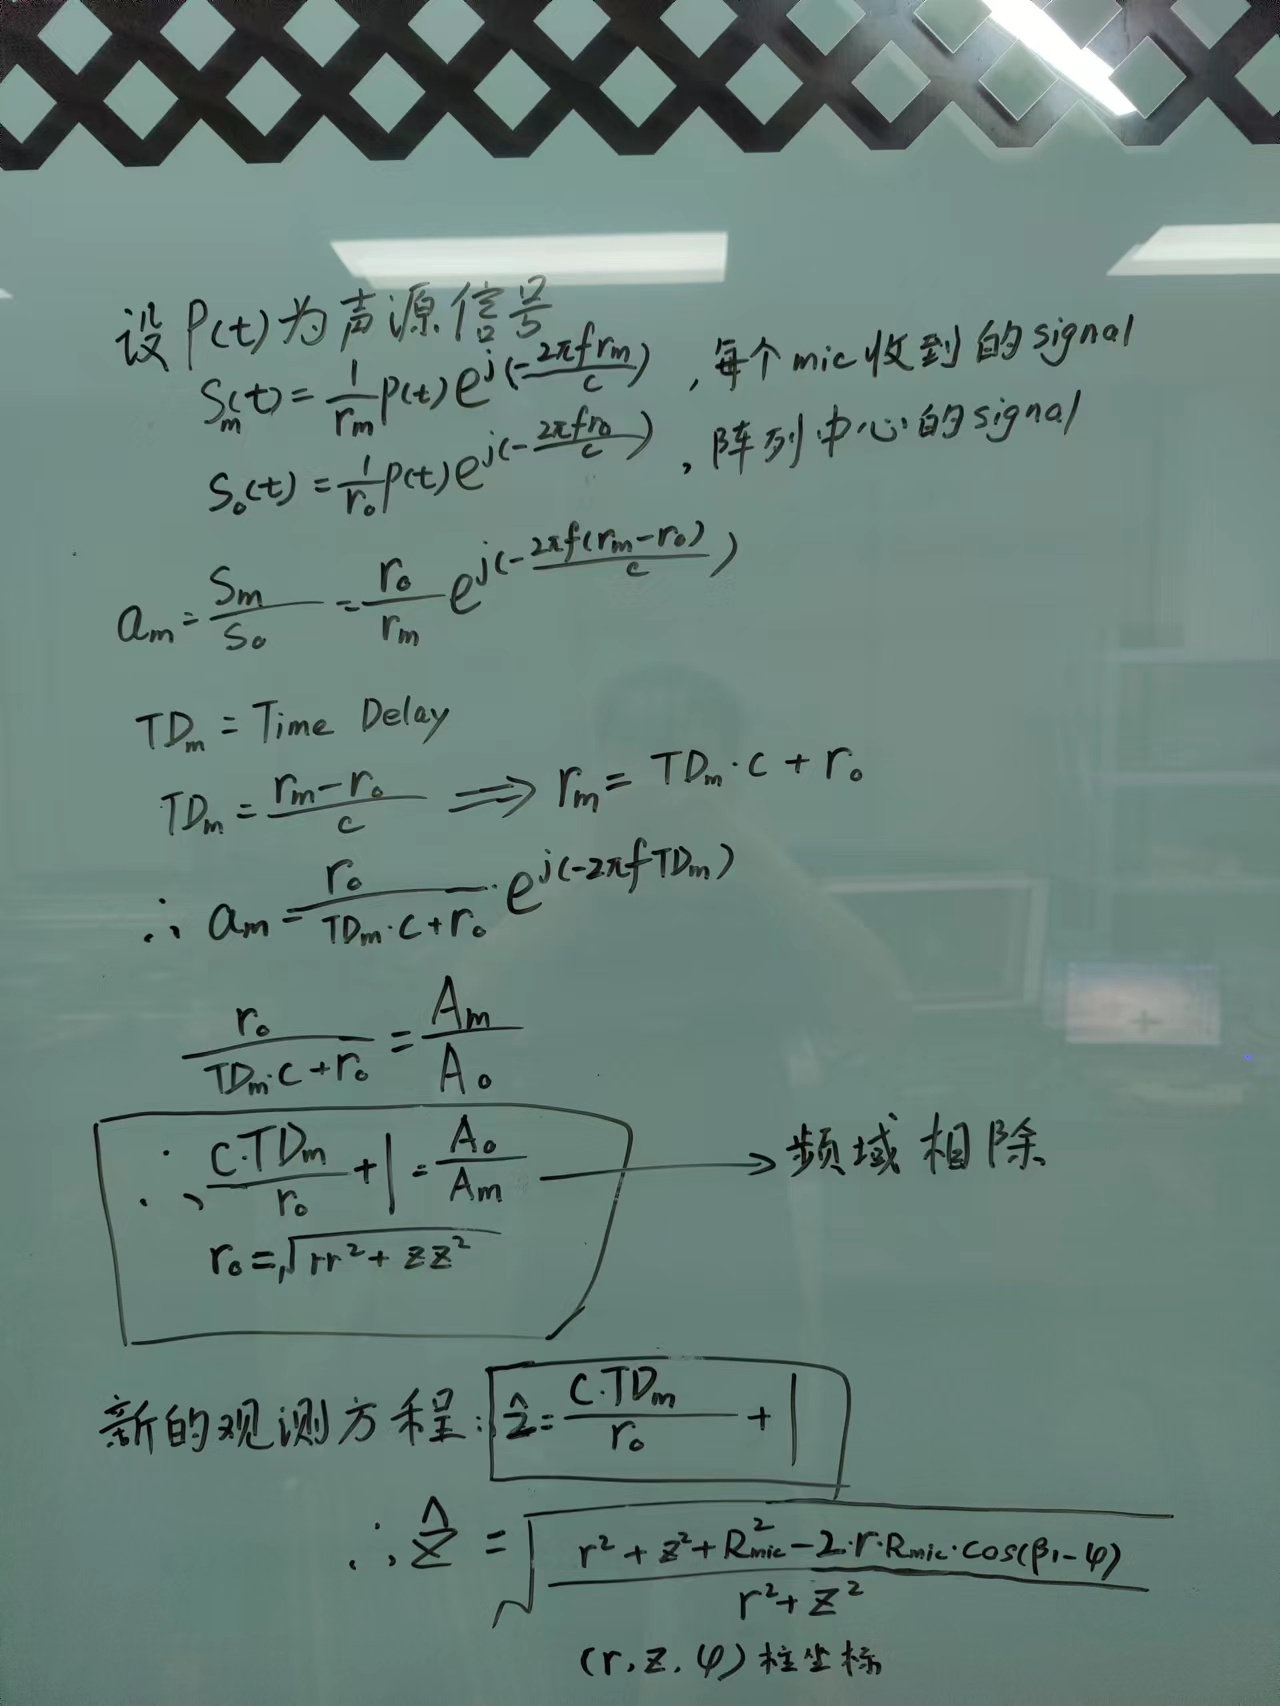 设 P(t) 为声源信号
Sm(t) = 1/rm P(t) e^j(-2πfrm/c) , 每个 mic 收到的 signal
S₀(t) = 1/r₀ P(t) e^j(-2πfr₀/c) , 阵列中心的 signal
am = Sm/S₀ = r₀/rm e^j(-2πf(rm-r₀)/c)
TDm = Time Delay
TDm = (rm-r₀)/c ⟹ rm = TDm·c + r₀
∴ am = r₀/(TDm·c+r₀) · e^j(-2πfTDm)
r₀/(TDm·c+r₀) = Am/A₀
∴ c·TDm/r₀ + 1 = A₀/Am → 频域相除
r₀ = √(rr²+zz²)
新的观测方程: ẑ = c·TDm/r₀ + 1
∴ ẑ = √((r²+z²+Rmic²-2·r·Rmic·cos(β₁-φ))/(r²+z²))
(r, z, φ) 柱坐标